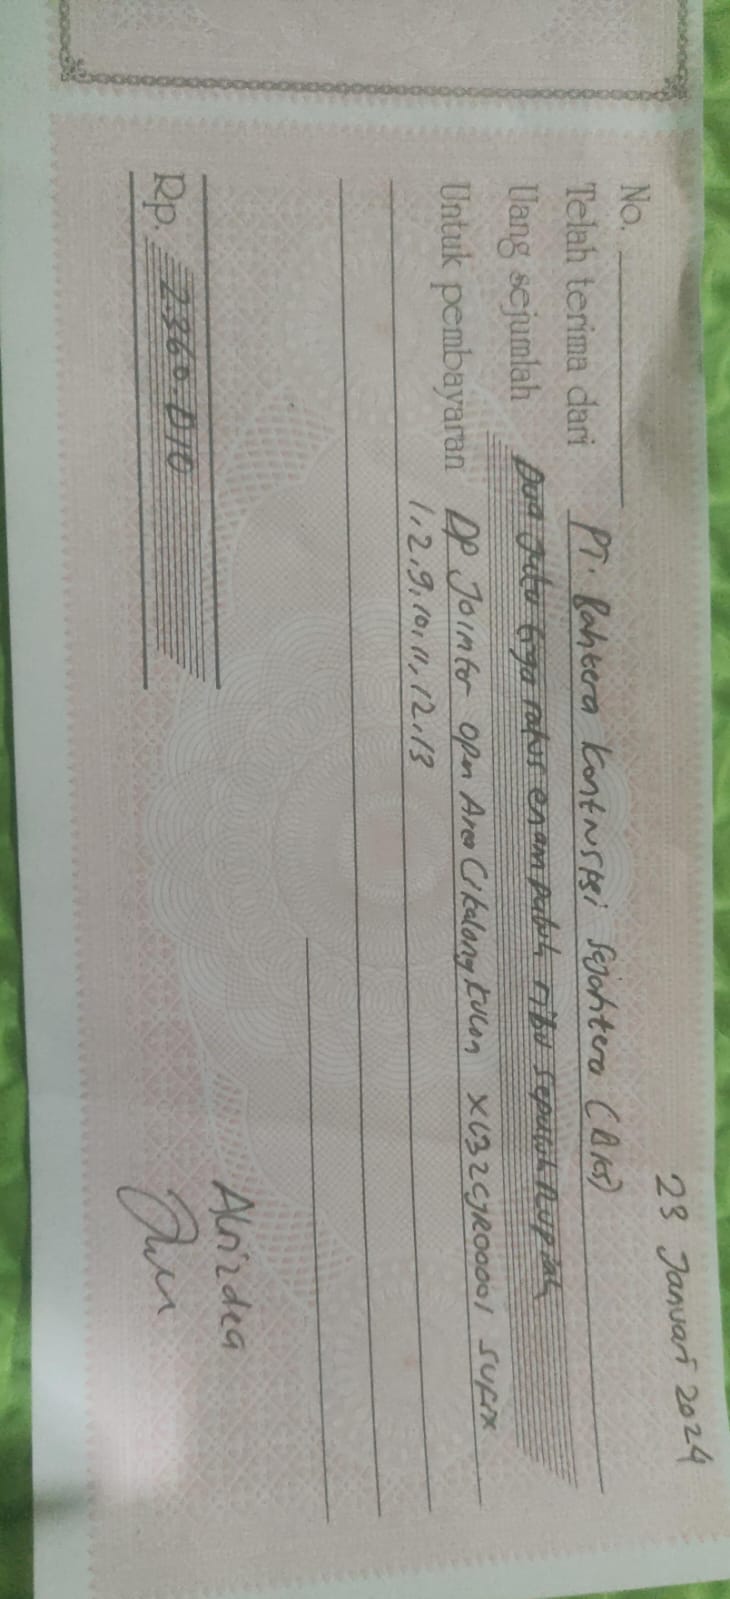 23 Januari 2024
No.
Telah terima dari PT. Bahtera Kontruksi Sejahtera (BKS)
Uang sejumlah Dua Juta tiga ratus enam puluh ribu sepuluh Rupiah
Untuk pembayaran DP Jointer open Area Cikalong kulon
1,2,9,10,11,12,13
Alrizdea
Rp. 2.360.010